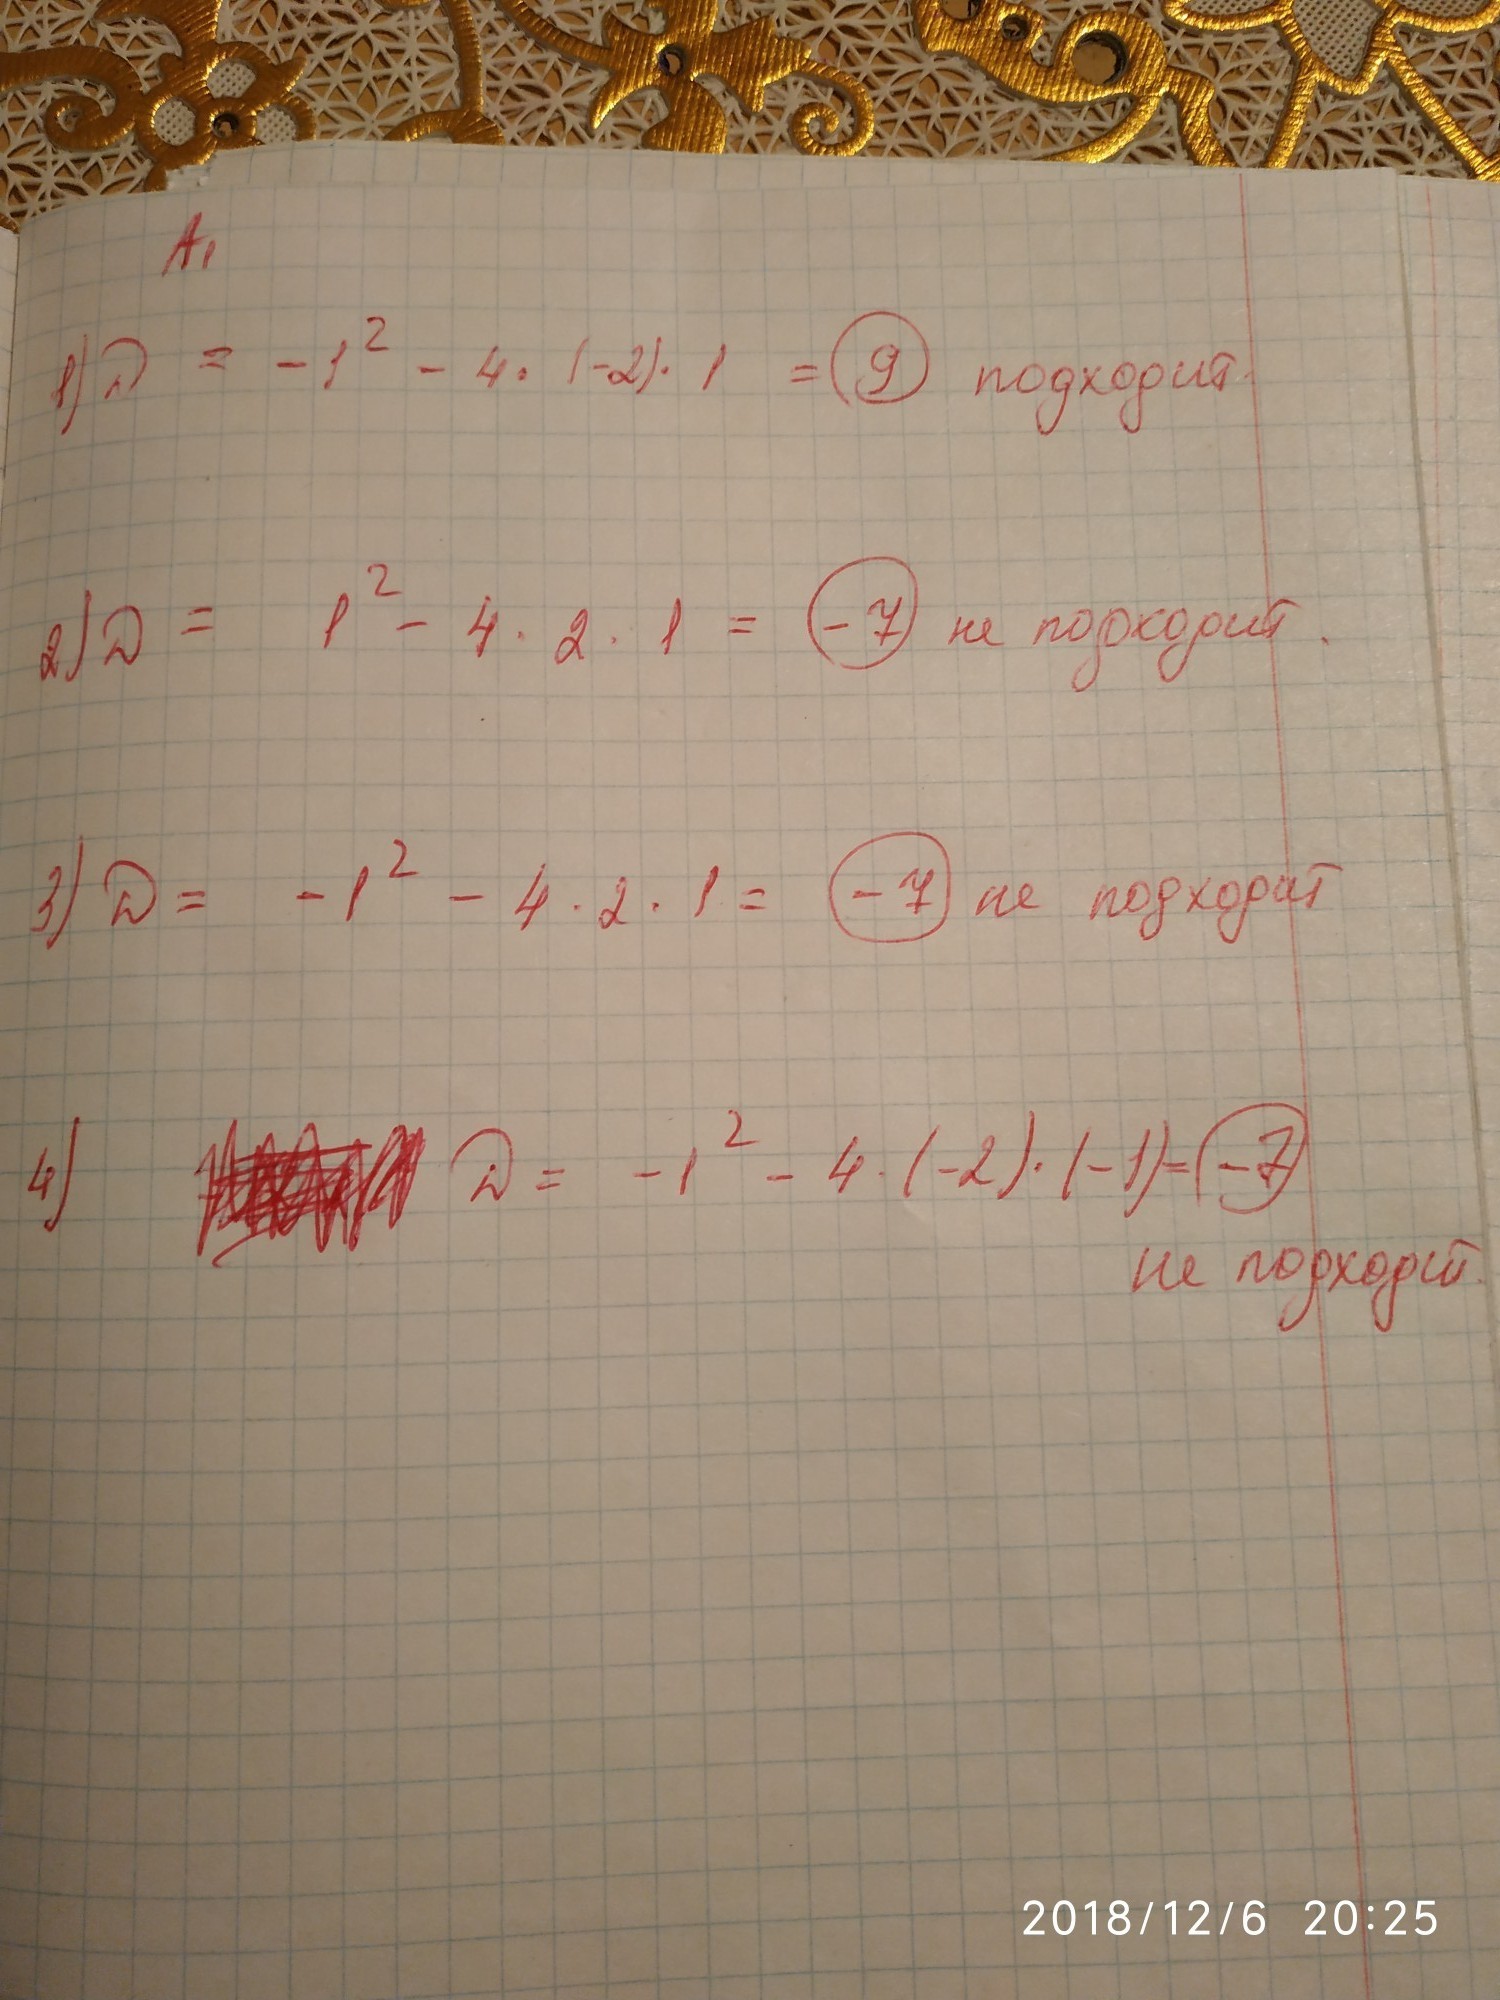 A1
1) D = -1² - 4·(-2)·1 = 9 подходит.
2) D = 1² - 4·2·1 = -7 не подходит.
3) D = -1² - 4·2·1 = -7 не подходит
4) D = -1² - 4·(-2)·(-1) = -7
не подходит.
2018/12/6 20:25